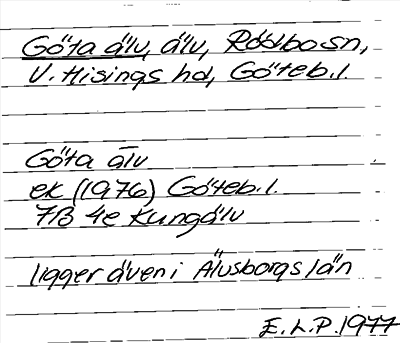 Göta älv, älv, Rödbo sn,
V. Hisings hd, Göteb. l.
Göta älv
ek (1976) Göteb. l.
7B 4e Kungälv
ligger även i Älvsborgs län
E. L. P. 1977